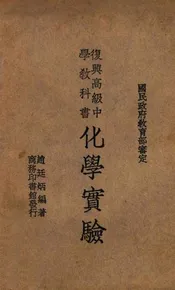 國民政府教育部審定
復興高級中
學教科書
化學實驗
趙廷炳編著
商務印書館發行